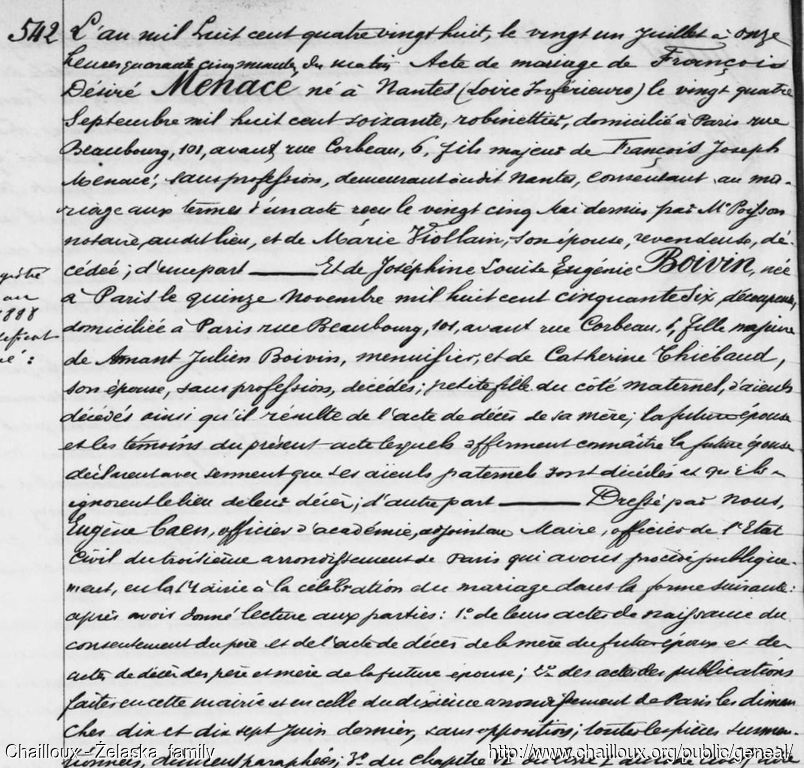 542 L'an mil huit cent quatre vingt huit, le vingt un Juillet à onze
heures quarante cinq minutes du matin Acte de mariage de François
Désiré Menacé, né à Nantes (Loire Inférieure) le vingt quatre
Septembre mil huit cent soixante, robinettier, domicilié à Paris rue
Beaubourg, 101, avant rue Corbeau, 6, fils majeur de François Joseph
Menacé, sans profession, demeurant audit Nantes, consentant au ma-
riage aux termes d'un acte reçu le vingt cinq Mai dernier par Me Poisson
notaire, audit lieu, et de Marie Viollain, son épouse, revendeuse, dé-
cédée; d'une part — Et de Joséphine Louise Eugénie Boivin, née
à Paris le quinze Novembre mil huit cent cinquante six, découpeuse,
domiciliée à Paris rue Beaubourg, 101, avant rue Corbeau, 6, fille majeure
de Amant Julien Boivin, menuisier, et de Catherine Thiébaud,
son épouse, sans profession, décédés; petite fille du côté maternel, d'aieuls
décédés ainsi qu'il résulte de l'acte de décès de sa mère; la future épouse
et les témoins du présent acte lesquels affirment connaître la future épouse
déclarent avec serment que ses aieuls paternels sont décédés et qu'ils
ignorent le lieu de leur décès; d'autre part — Dressé par nous,
Eugène Caen, officier d'académie, adjoint au Maire, officier de l'Etat
Civil du troisième arrondissement de Paris qui avons procédé publique-
ment, en la Mairie à la célébration du mariage dans la forme suivante:
après avoir donné lecture aux parties: 1º de leurs actes de naissance du
consentement du père et de l'acte de décès de la mère du futur époux et des
actes de décès des père et mère de la future épouse; 2º des actes des publications
faites en cette mairie et en celle du dixième arrondissement de Paris les diman
ches dix et dix sept Juin dernier, sans opposition; toutes les pièces susmen-
tionnées, dûment paraphées; 3º du chapitre VI
1888
Chailloux - Żelaska family
http://www.chailloux.org/public/geneal/